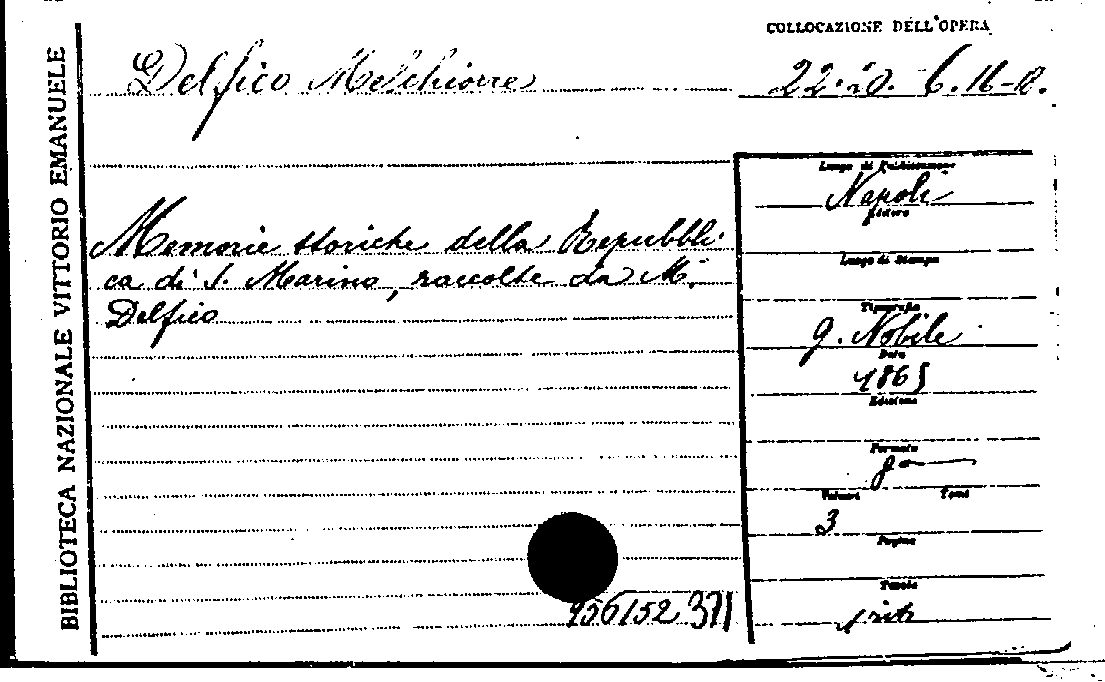 BIBLIOTECA NAZIONALE VITTORIO EMANUELE
COLLOCAZIONE DELL'OPERA
Delfico Melchiorre
22.20. 6.16-18.
Memorie storiche della Repubbli-
ca di S. Marino, raccolte da M.
Delfico
Luogo di Pubblicazione
Napoli
Editore
Luogo di Stampa
Tipografia
G. Nobile
Data
1865
Edizione
Formato
8°
Volumi Tomi
3
Pagine
Tavole
1 ritr
956152 371